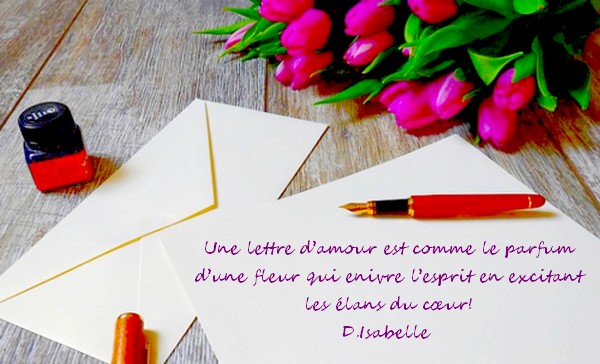 Une lettre d'amour est comme le parfum
d'une fleur qui enivre l'esprit en excitant
les élans du cœur!
D.Isabelle